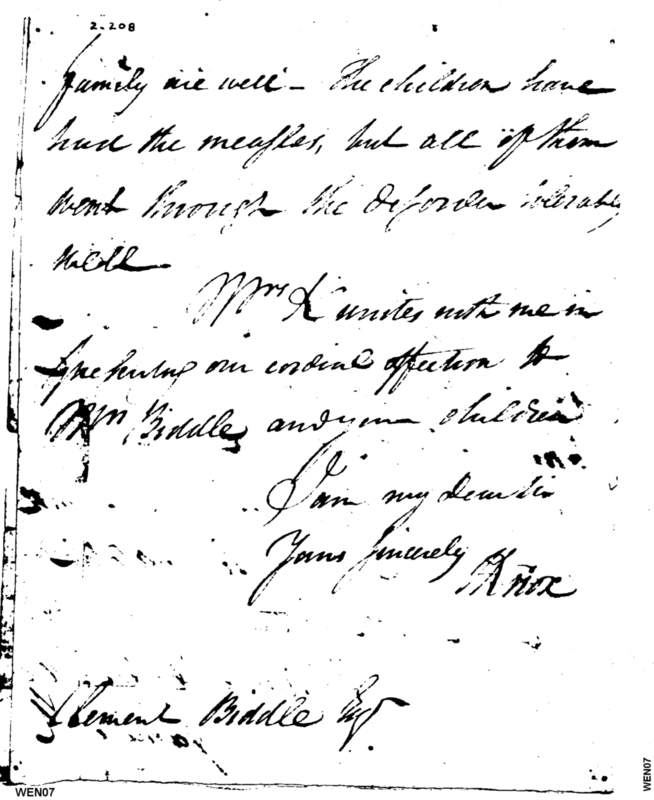 2-208
family are well - The children have
had the measles, but all of them
went through the disorder tolerably
well.
Mrs K unites with me in
presenting our cordial affection to
Mrs Biddle, and your children
I am my dear sir
Yours sincerely
HKnox
Clement Biddle Esqr
WEN07
WEN07